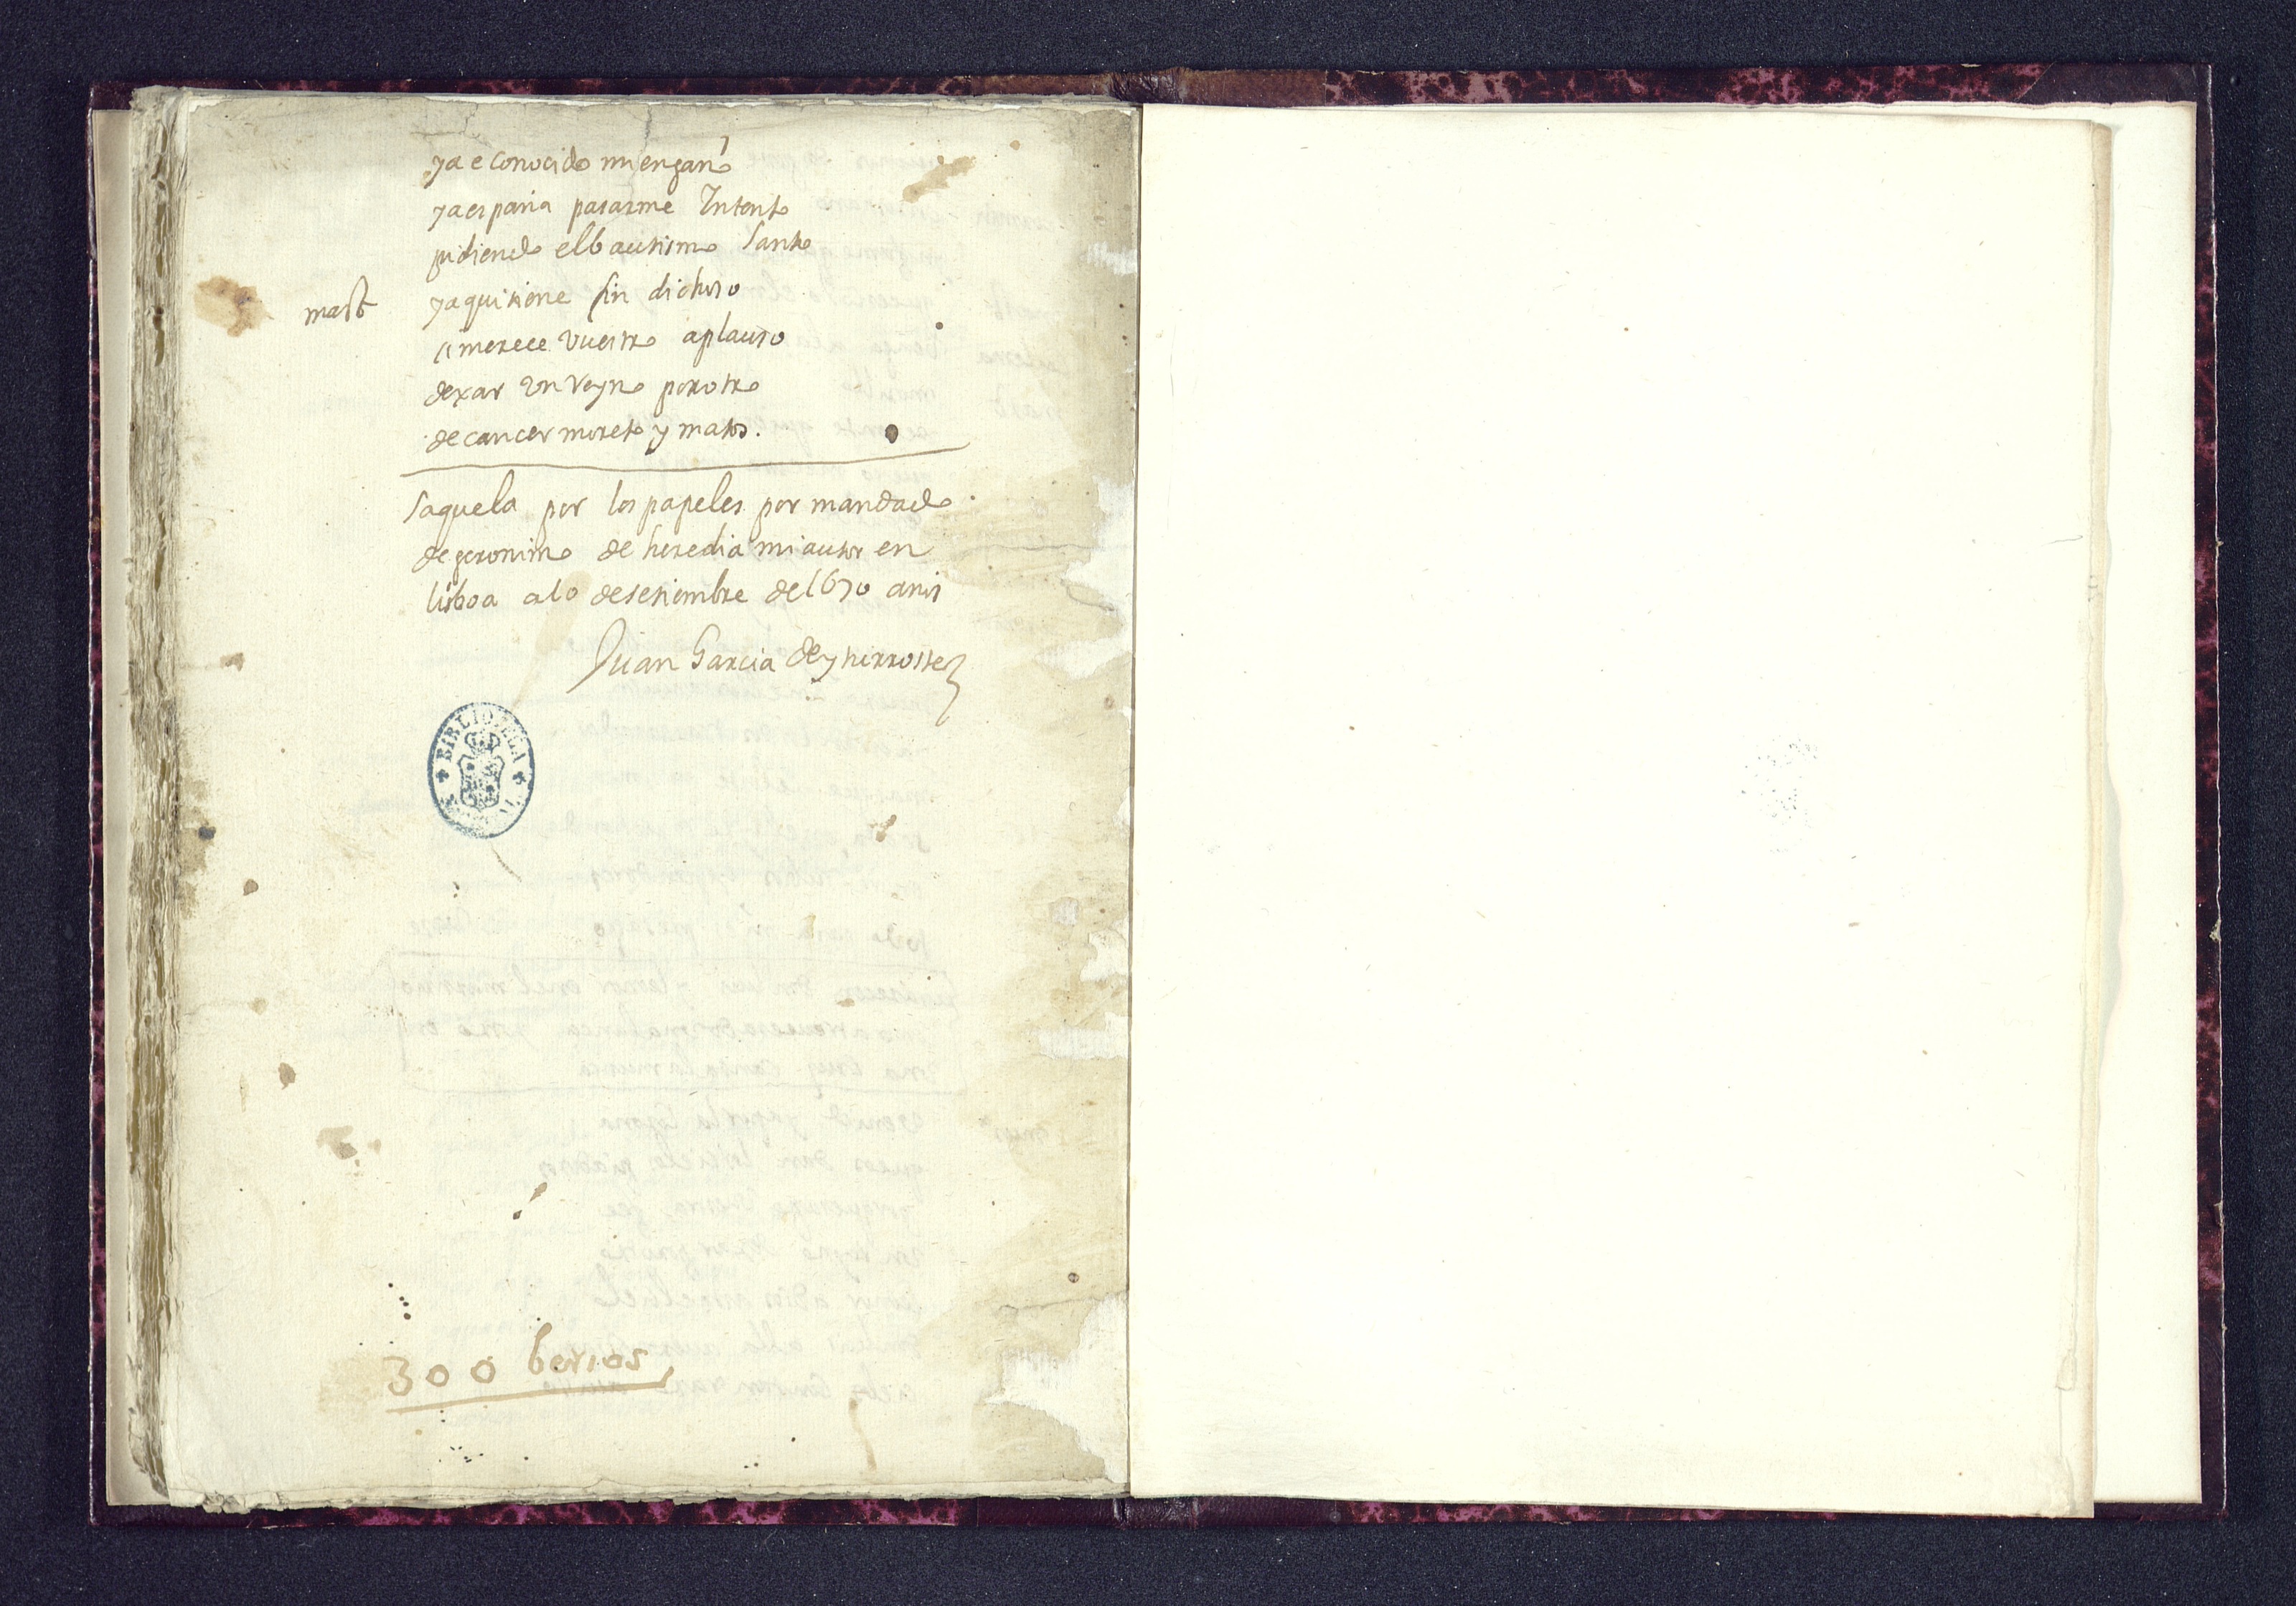 ya e conocido mi engaño
y a españa pasarme Intento
pidiendo el bautismo Santo
mart y aqui tiene fin dichoso
si merece vuestro aplauso
dexar un Reyno por otro
de cancer moreto y matos.
Saquela por los papeles por mandado
de geronimo de heredia mi autor en
lisboa a 10 de setiembre de 1670 años
Juan Garcia de
BIBLIOTECA
300 bersos